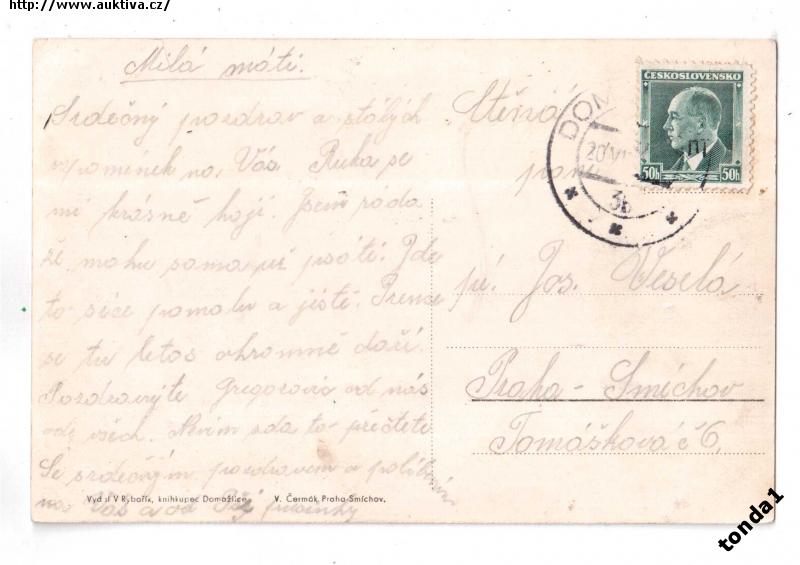 http://www.auktiva.cz/
Milá máti.
Srdečný pozdrav a stálých
vzpomínek na Vás Ruka se
mi krásně hojí. Jsem ráda
že mohu sama již psáti. Jde
to sice pomalu a jistě.
se tu letos ohromně daří.
Pozdravujte od nás
ode všech. Nevím zda to přečtete
Se srdečným pozdravem a políbením
na Vás a od
ČESKOSLOVENSKO
50h 50h
DOM
20 VI
3b
pí. Jos. Veselá
Praha - Smíchov
Tomáškova č 6.
Vydal V Rybařík, knihkupec Domažlice
V. Čermák, Praha-Smíchov.
tonda1